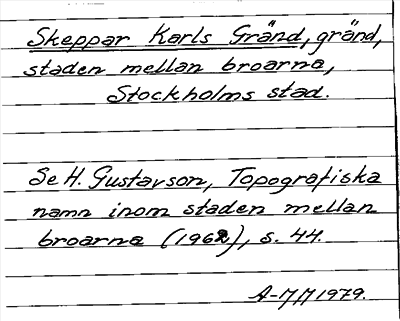 Skeppar Karls Gränd, gränd,
staden mellan broarna,
Stockholms stad.
Se H. Gustavson, Topografiska
namn inom staden mellan
broarna (1962), s. 44.
A-M M 1979.